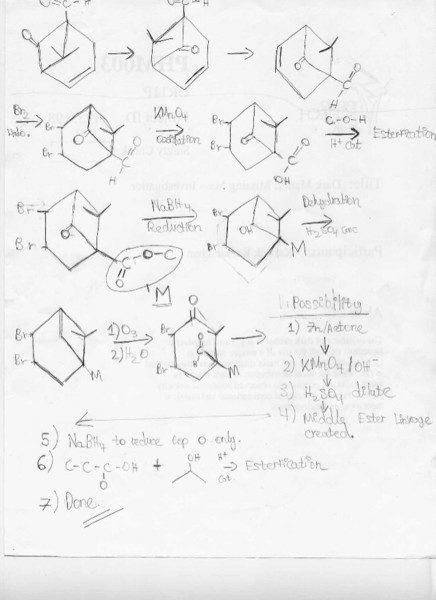 O C-H O C-H
O O
C-H
O
Br2
Halo.
Br
Br
O
C O
H
KMnO4
oxidation
Br
Br
O
C O
OH
C-O-H
H+ Cat
Esterification
Br
Br
O
C-O-C
O
M
NaBH4
Reduction
Br
Br
OH
M
Dehydration
H2SO4 conc
Br
Br
M
1) O3
2) H2O
O
Br
Br
M
1. Possibility
1) Zn/Acetone
2) KMnO4/OH-
3) H2SO4 dilute
4) Middly Ester Linkage
created.
5) NaBH4 to reduce top O only.
6) C-C-C-OH + OH H+ Cat. Esterification
O
7) Done.